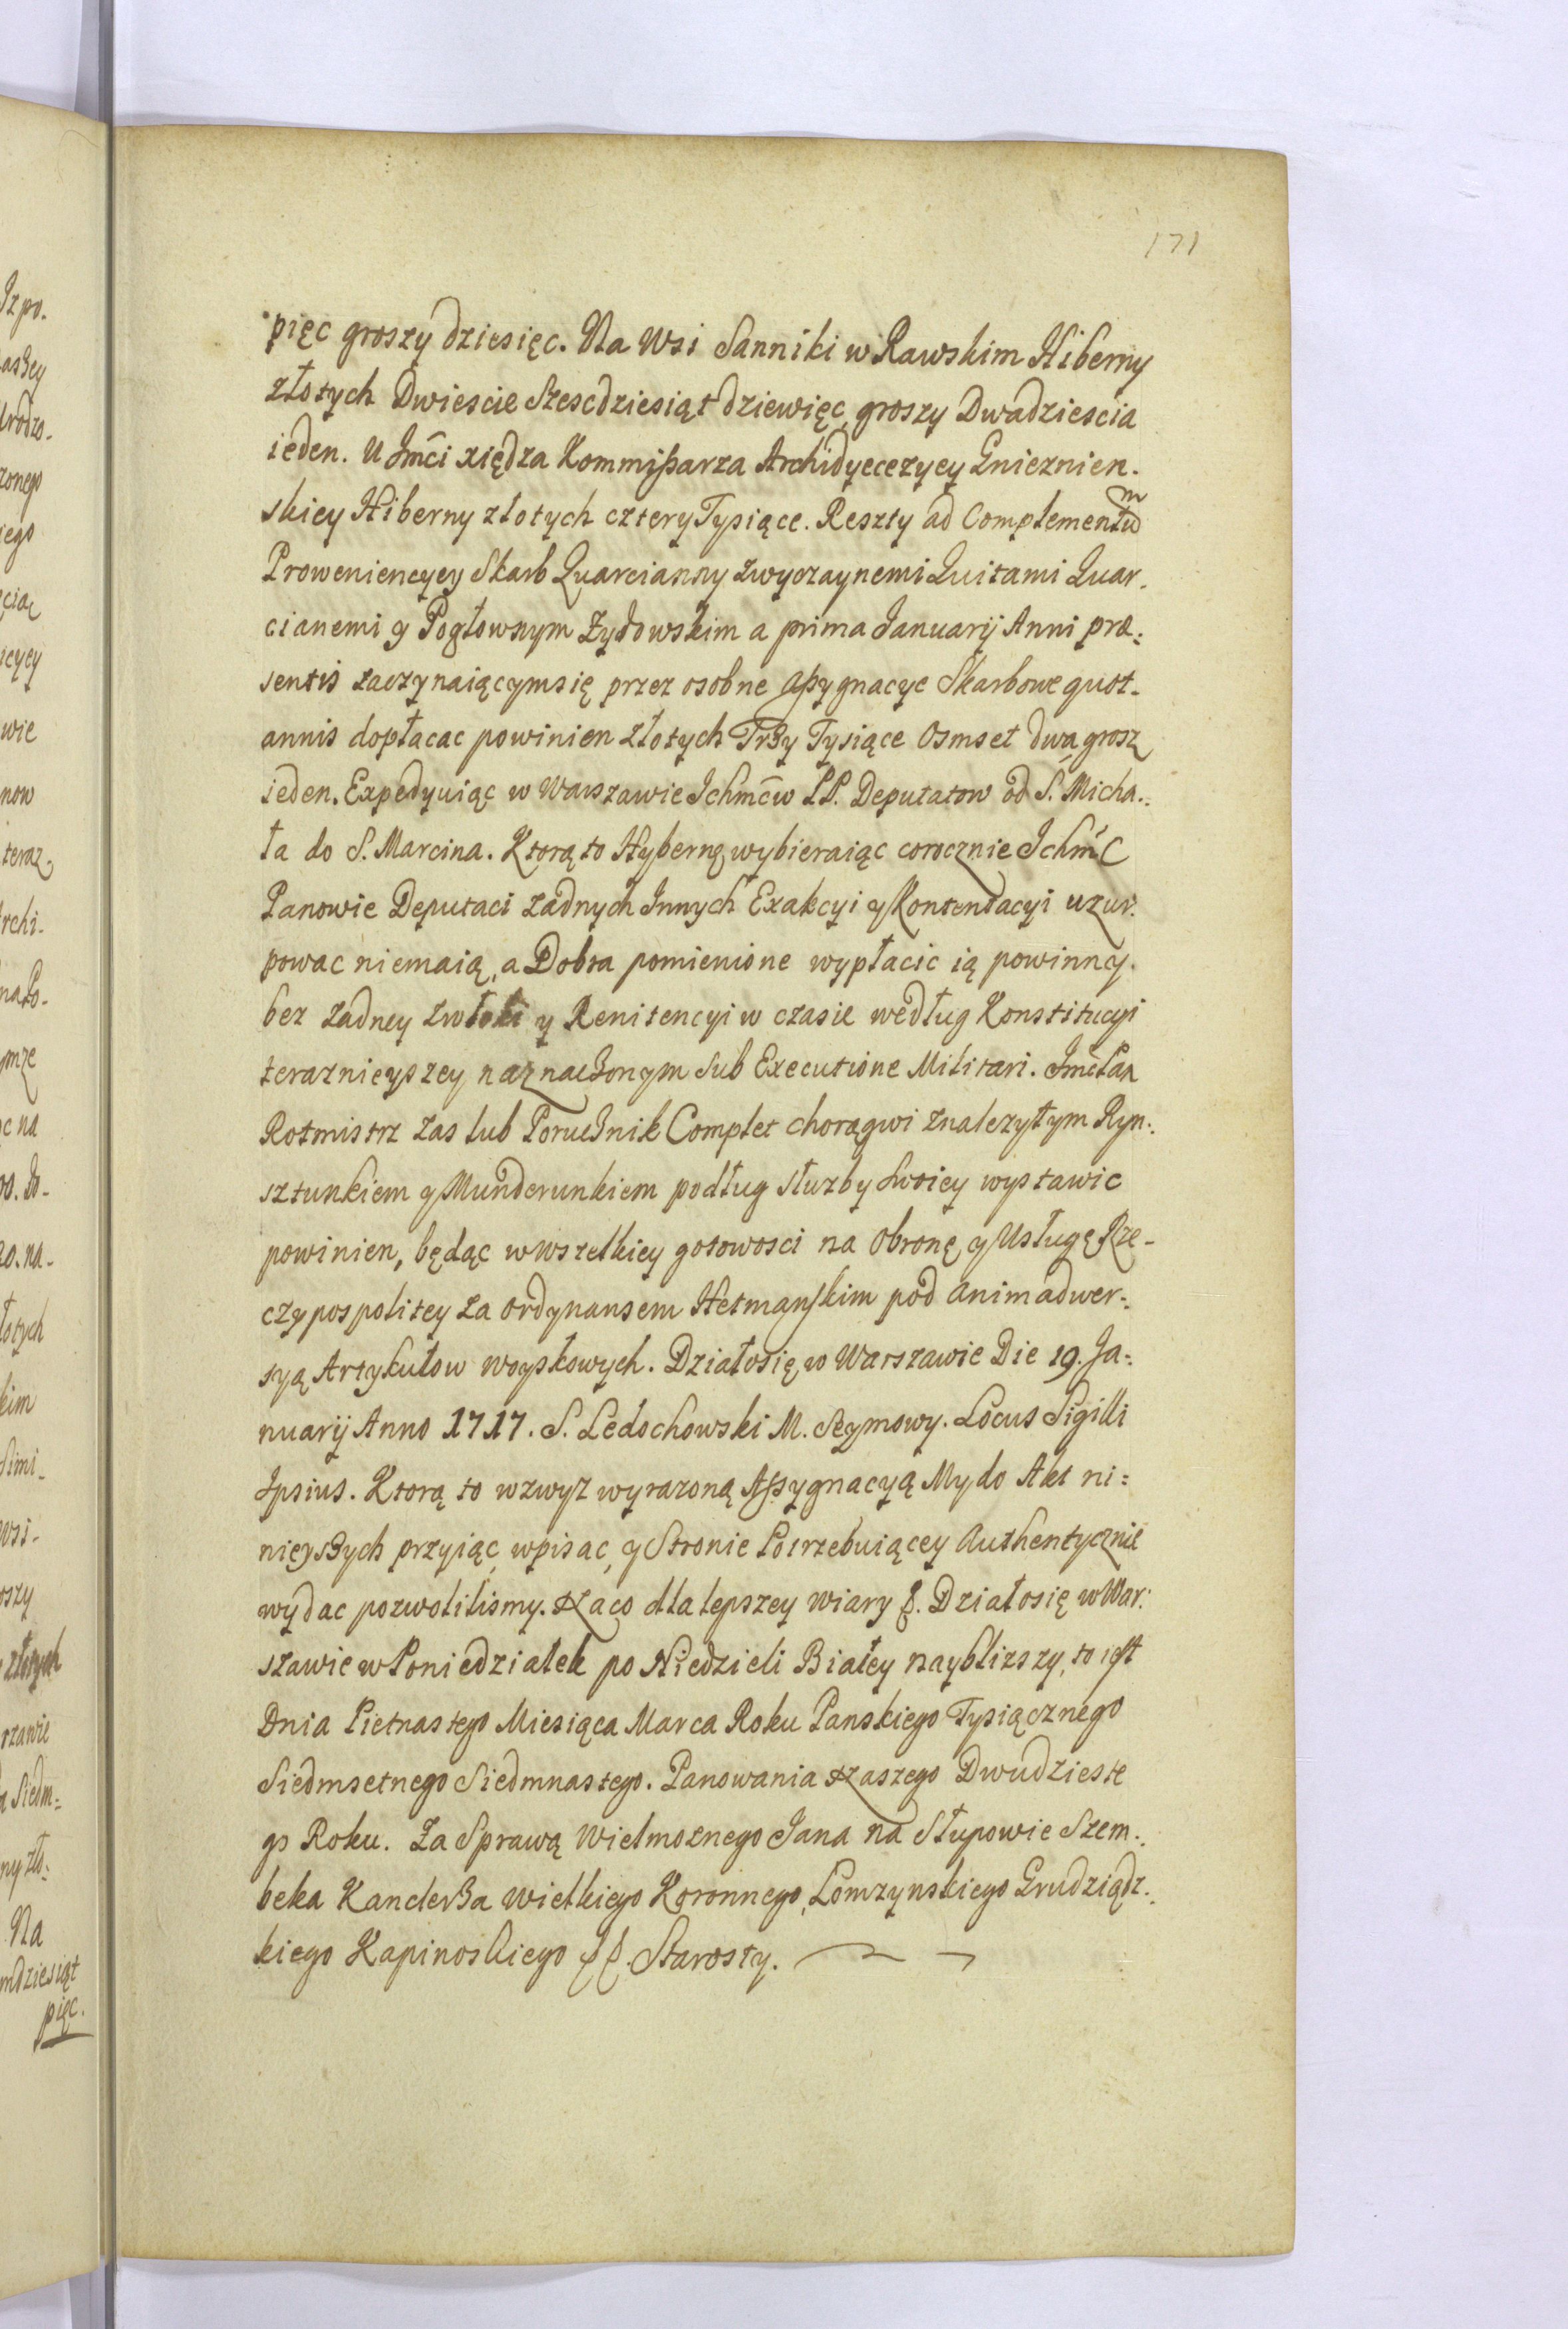 171
pięc groszy dziesięc. Na Wsi Sanniki w Rawskim Hiberny
złotych Dwiescie Szescdziesiąt dziewięc, groszy Dwadziescia
ieden. U Jmci xiędza Kommißarza Archidyecezycy Gnieznien-
skiey Hiberny złotych cztery Tysiące. Reszty ad Complementum
Proweniencyey Skarb Quarcianny zwyczaynemi Quitami Quar-
cianemi y Pogłownym Zydowskim a prima Januarij Anni præ=
sentis zaczynaiącym się przez osobne Aßygnacye Skarbowe quot-
annis dopłacac powinien złotych Trzy Tysiące Osmset dwa grosz
ieden. Expedyuiąc w Warszawie Ichmcw PP. Deputatow od S. Micha=
ła do S. Marcina. Ktorą to Hybernę wybieraiąc corocznie Ichmc
Panowie Deputaci zadnych Innych Exakcyi y Kontentacyi uzur-
powac niemaią, a Dobra pomienione wypłacic ią powinny.
bez zadney zwłoki y Renitencyi w czasie według Konstitucyi
teraznieyszey naznaczonym sub Executione Militari. Jmc Pan
Rotmistrz zas lub Porucznik Complet chorągwi znalezytym Ryn=
sztunkiem y Munderunkiem podług słuzby swoiey wystawic
powinien, będąc w wszelkiey gotowosci na Obronę y Usługę Rze-
czypospolitey za ordynansem Hetmanskim pod animadwer=
syą Artykułow woyskowych. Działosię w Warszawie Die 19. Ja=
nuarij Anno 1717. S. Ledochowski M. Seymowy. Locus Sigilli
Ipsius. Ktorą to wzwyz wyrazoną Aßygnacyą My do Akt ni=
nieyszych przyiąc, wpisac, y Stronie Potrzebuiącey Authentycznie
wydac pozwolilismy. Na co dla lepszey wiary &. Działosię w War=
szawie w Poniedziałek po Niedzieli Białey naybliższy, to iest
Dnia Pietnastego Miesiąca Marca Roku Panskiego Tysiącznego
Siedmsetnego Siedmnastego. Panowania Naszego Dwudzieste
go Roku. Za Sprawą Wielmoznego Jana na Słupowie Szem=
beka Kanclerza Wielkiego Koronnego, Lomzynskiego Grudziądz=
kiego Kapinoskiego &&. Starosty.